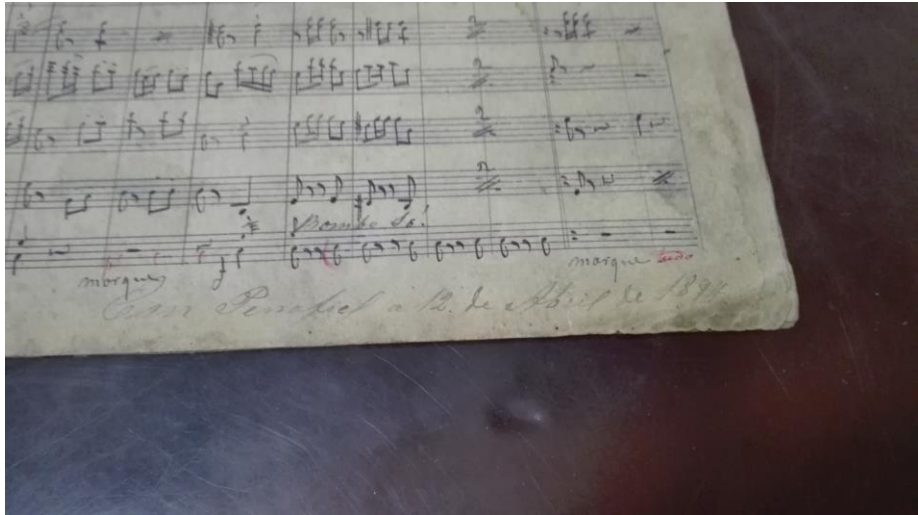 Bombo Só!
marque marque tudo
Penafiel a 12. de Abril de 189